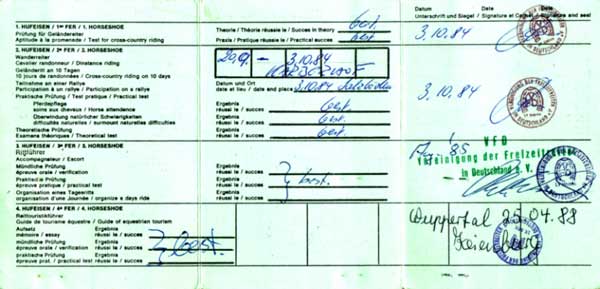 Datum
Unterschrift und Siegel / Signature et Cachet / Signature and seal
1. HUFEISEN / 1er FER / 1. HORSESHOE
Prüfung für Geländeritt
Aptitude à la promenade / Test for cross-country riding
Theorie / Théorie réussie / Success in theory
best.
Praxis / Pratique réussie / Practical success
best
3.10.84
2. HUFEISEN / 2me FER / 2. HORSESHOE
Wanderreiter
Cavalier randonneur / Distance riding
Geländeritt an 10 Tagen
10 jours de randonnées / Cross-country riding on 10 days
20.9. – 3.10.84
Teilnahme an einer Rallye
Participation à un rallye / Participation on a rally
Datum und Ort
date et lieu / date and place
3.10.84
3.10.84
Praktische Prüfung / Test pratique / Practical test
Pferdepflege
soins aux chevaux / Horse attendance
Ergebnis
réussi le / succes
best.
Überwindung natürlicher Schwierigkeiten
difficultés naturelles / surmount naturelles difficulties
Ergebnis
réussi le / succes
best.
Theoretische Prüfung
Examens théoriques / Theoretical test
Ergebnis
réussi le / succes
best.
3. HUFEISEN / 3me FER / 3. HORSESHOE
Rittführer
Accompagnateur / Escort
mündliche Prüfung
épreuve orale / verification
Ergebnis
réussi le / succes
Praktische Prüfung
épreuve pratique / practical test
Ergebnis
réussi le / succes
best.
Organisation eines Tagesritts
organisation d'une journée / organize a days ride
Ergebnis
réussi le / succes
85
VFD
Vereinigung der Freizeitreiter
in Deutschland e. V.
4. HUFEISEN / 4me FER / 4. HORSESHOE
Reittouristikführer
Guide de tourisme équestre / Guide of equestrien tourism
Aufsatz
mémoire / essay
Ergebnis
réussi le / succes
mündliche Prüfung
épreuve orale / verification
Ergebnis
réussi le / succes
praktische Prüfung
épreuve prat. / practical test
Ergebnis
réussi le / succes
best.
Wuppertal 25.04.88